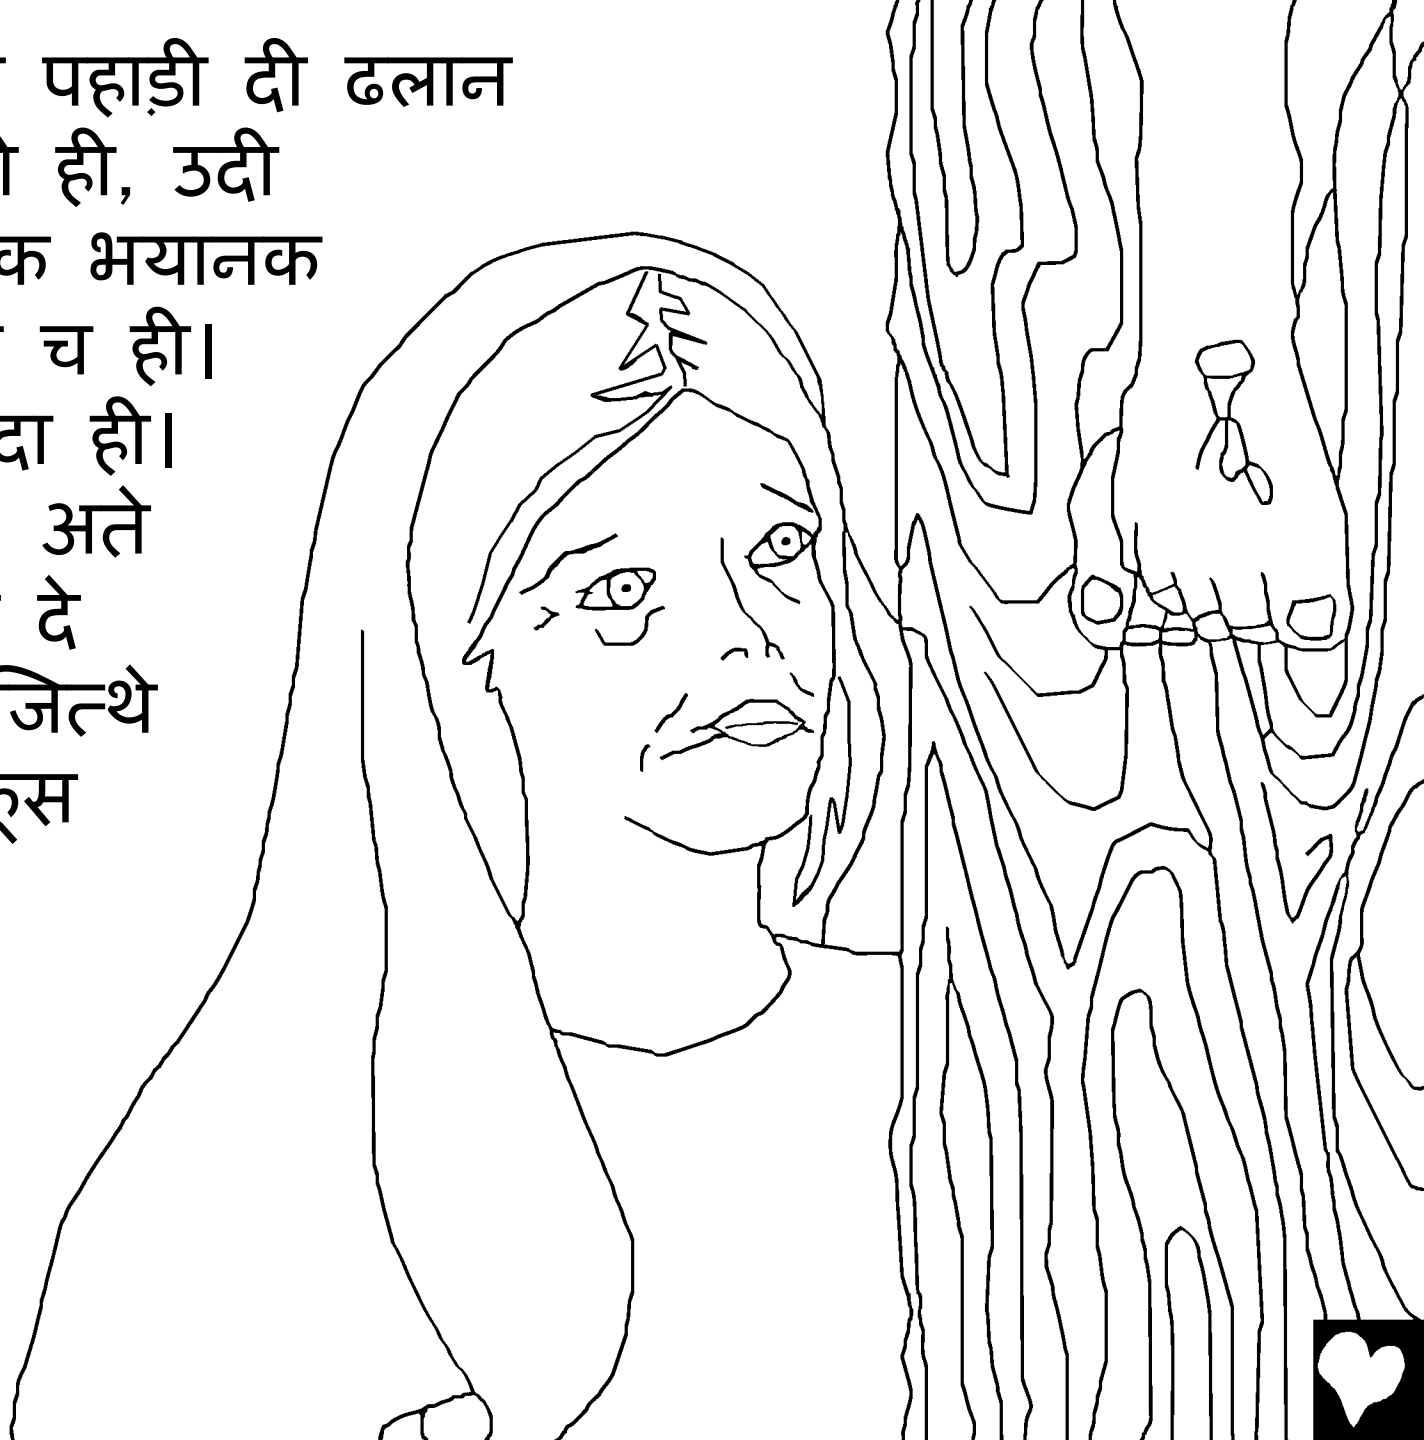 पहाड़ी दी ढलान
ही, उदी
भयानक
च ही।
ही।
अते
दे
जित्थे